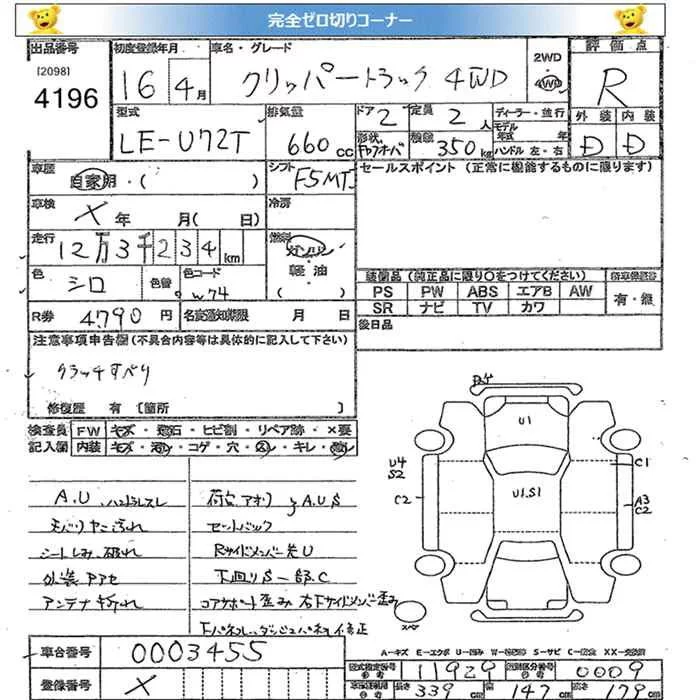 完全ゼロ切りコーナー
出品番号 初度登録年月 車名・グレード 2WD 4WD 評価点
[2098] 4196 16年4月 クリッパートラック 4WD R
型式 排気量 ドア 2 定員 2人 ディーラー・並行 外装 内装
LE-U72T 660cc 形状 キャブオーバ 積載 350kg モデル年式 年 ハンドル 左・右 D D
車歴 自家用・( ) シフト F5MT セールスポイント(正常に機能するものに限ります)
車検 X 年 月( 日) 冷房
走行 12万3千234km 燃料 ガソリン 軽油 ( )
色 シロ 色替 色コード W74
装備品(純正品に限り○をつけてください)
PS PW ABS エアB AW 有・無
SR ナビ TV カワ
R券 4790円 名変通知期限 月 日 後日品
注意事項申告欄(不具合内容等は具体的に記入して下さい)
クラッチすべり
修復歴 有 [箇所 ]
検査員 FW キズ・飛石・ヒビ割・リペア跡・×要
記入欄 内装 キズ・汚レ・コゲ・穴・スレ・キレ・
A.U、ハンドルスレ 荷台アオリ A.U.S
天バリヤニ汚れ セットバック
シートしみ、破れ Rサイドメンバー先U
外装アアセ 下回りS一部C
アンテナ折れ コアサポート歪み 右下サイドメンバー歪み
U1
U4
S2
C2
U1.S1
C1
A3
C2
スペア
A-キズ E-エクボ U-凹み W-補修跡 S-サビ C-腐食 XX-交換済
車台番号 0003455 型式指定番号 11929 類別区分番号 0009
登録番号 X 長さ 339 幅 147 高さ 179